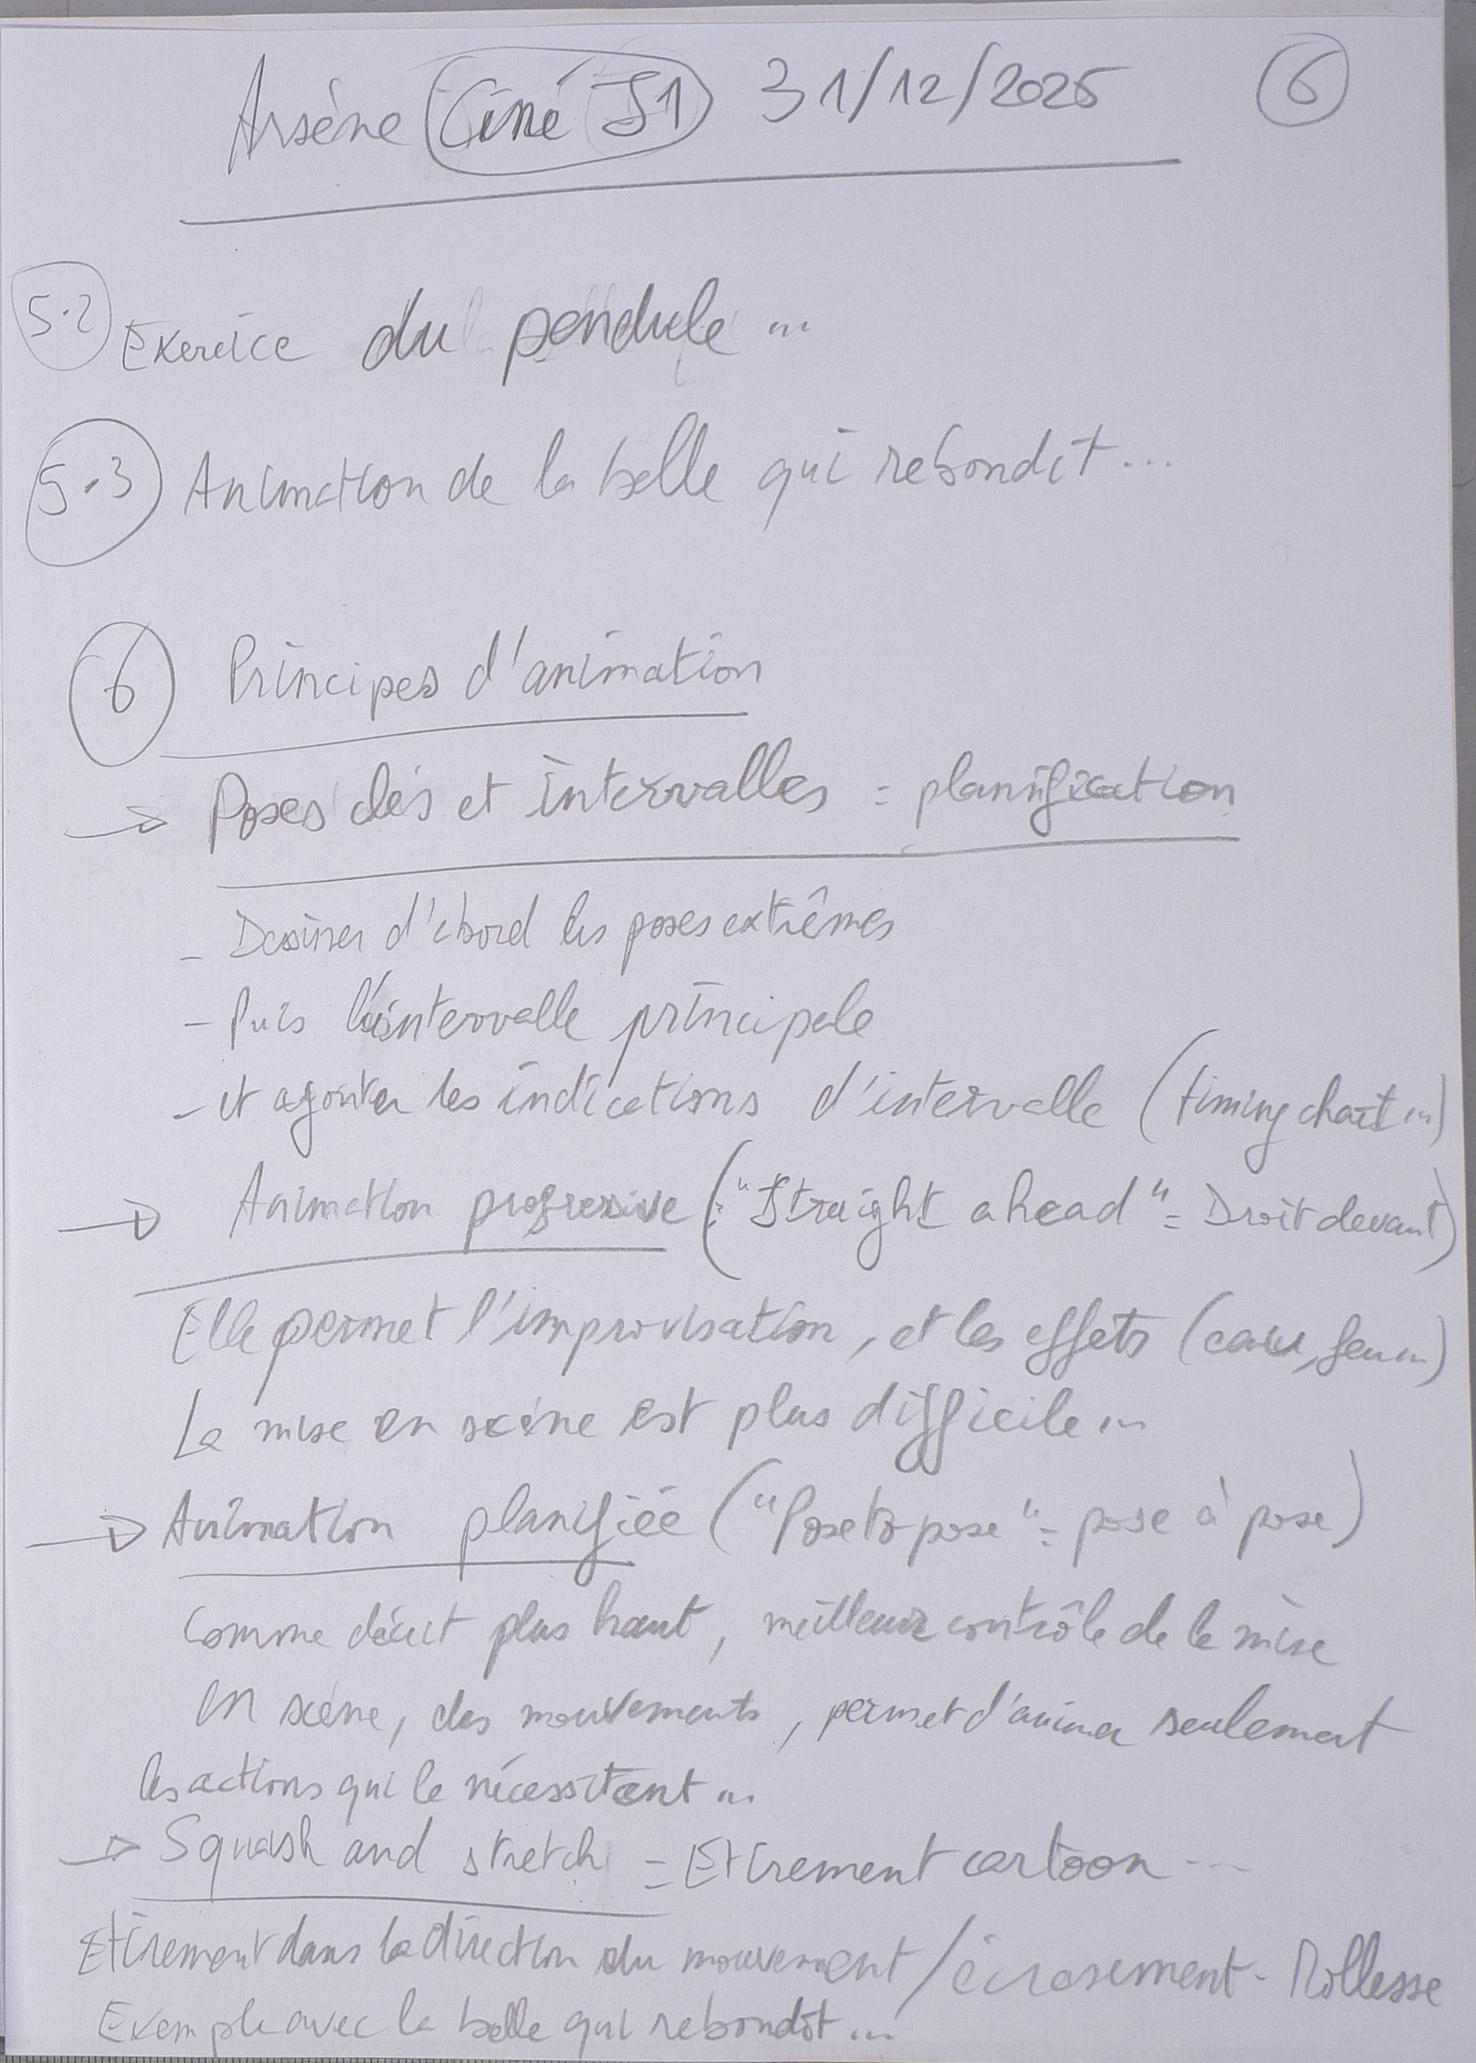 Arsène Ciné J1 31/12/2025 6
5.2 Exercice du pendule ...
5.3 Animation de la balle qui rebondit ...
6 Principes d'animation
→ Poses clés et intervalles = planification
- Dessiner d'abord les poses extrêmes
- Puis l'intervalle principale
- et ajouter les indications d'intervalle (timing chart ...)
→ Animation progressive (: "Straight ahead" = Droit devant)
Elle permet l'improvisation, et les effets (eau, feu ...)
La mise en scène est plus difficile ...
→ Animation planifiée ("Pose to pose" = pose à pose)
Comme décrit plus haut, meilleur contrôle de la mise
en scène, des mouvements, permet d'animer seulement
les actions qui le nécessitent ...
→ Squash and stretch = Etirement cartoon ...
Etirement dans la direction du mouvement / écrasement - Mollesse
Exemple avec la balle qui rebondit ...